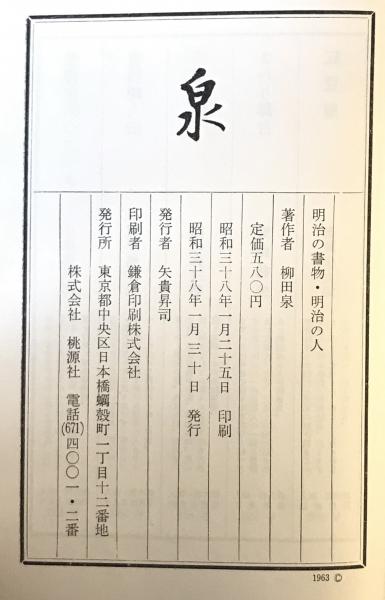 泉
明治の書物・明治の人
著作者 柳田泉
定価五八〇円
昭和三十八年一月二十五日 印刷
昭和三十八年一月三十日 発行
発行者 矢貴昇司
印刷者 鎌倉印刷株式会社
発行所 東京都中央区日本橋蠣殻町一丁目十二番地
株式会社 桃源社 電話(671)四〇〇一・二番
1963 ©